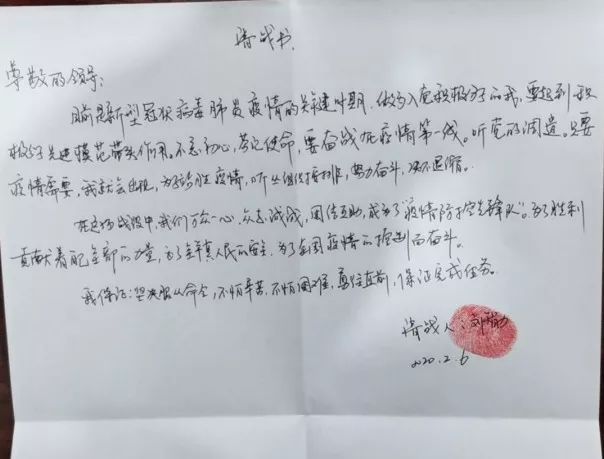 请战书
尊敬的领导：
新型冠状病毒肺炎疫情的关键时期，做为入党积极分子的我，要起到积
极分子先进模范带头作用。不忘初心，牢记使命，要奋战在疫情第一线。听党的调遣。只要
疫情需要，我就会出现，为了战胜疫情，听从组织安排，努力奋斗，决不退缩。
在这场战役中，我们万众一心，众志成城，团结互助，成为了"疫情防控先锋队"。为了胜利
贡献着自己全部的力量，为了全县人民的安全，为了全国疫情的控制而奋斗。
我保证：坚决服从命令，不怕辛苦，不怕困难，勇往直前，保证完成任务。
请战人：刘
2020.2.6